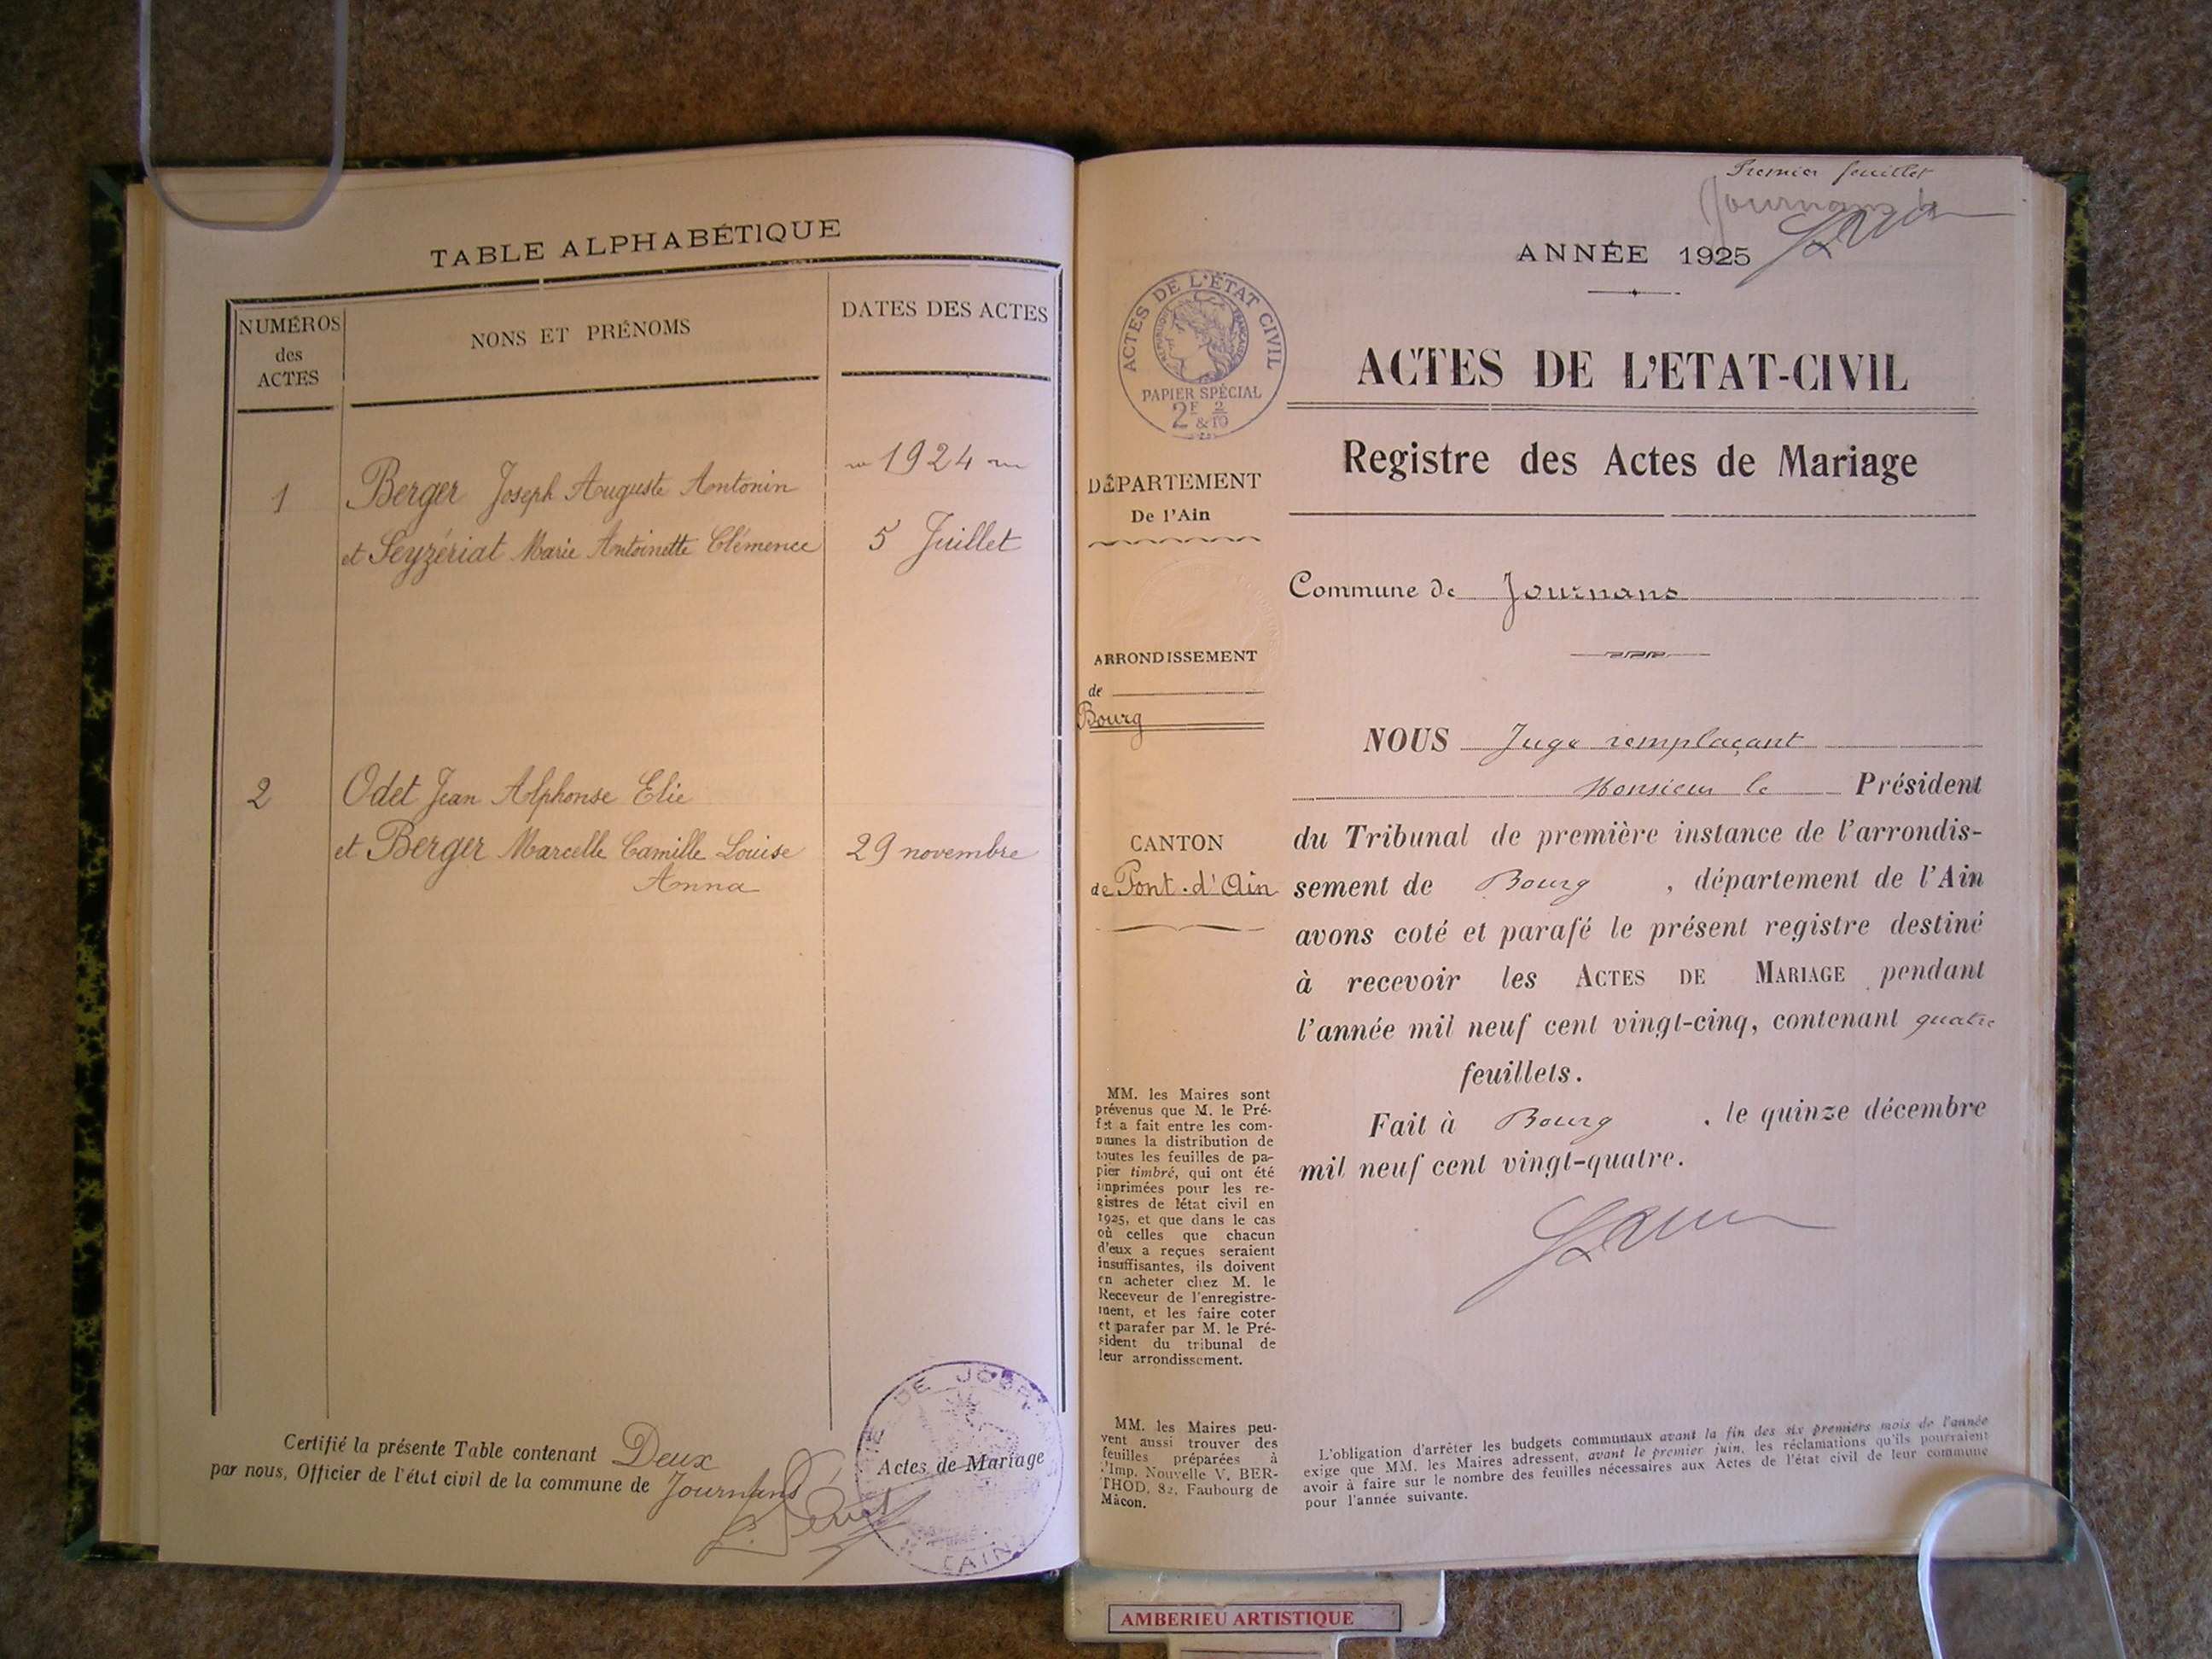 TABLE ALPHABÉTIQUE
NUMÉROS
des
ACTES
NONS ET PRÉNOMS
DATES DES ACTES
1924
1
Berger Joseph Auguste Antonin
et Seyzériat Marie Antoinette Clémence
5 Juillet
2
Odet Jean Alphonse Elie
et Berger Marcelle Camille Louise
Anna
29 novembre
Certifié la présente Table contenant Deux
Actes de Mariage
par nous, Officier de l'état civil de la commune de Journans
DE JOURNANS
(AIN)
Premier feuillet
Journans
ANNÉE 1925
ACTES DE L'ÉTAT CIVIL
RÉPUBLIQUE FRANÇAISE
PAPIER SPÉCIAL
2F & 2/10
ACTES DE L'ETAT-CIVIL
Registre des Actes de Mariage
DÉPARTEMENT
De l'Ain
Commune de Journans
ARRONDISSEMENT
de
Bourg
CANTON
de Pont-d'Ain
NOUS Juge remplaçant
Monsieur le Président
du Tribunal de première instance de l'arrondis-
sement de Bourg, département de l'Ain
avons coté et parafé le présent registre destiné
à recevoir les ACTES DE MARIAGE pendant
l'année mil neuf cent vingt-cinq, contenant quatre
feuillets.
Fait à Bourg, le quinze décembre
mil neuf cent vingt-quatre.
MM. les Maires sont
prévenus que M. le Pré-
fet a fait entre les com-
munes la distribution de
toutes les feuilles de pa-
pier timbré, qui ont été
imprimées pour les re-
gistres de l'état civil en
1925, et que dans le cas
où celles que chacun
d'eux a reçues seraient
insuffisantes, ils doivent
en acheter chez M. le
Receveur de l'enregistre-
ment, et les faire coter
et parafer par M. le Pré-
sident du tribunal de
leur arrondissement.
MM. les Maires peu-
vent aussi trouver des
feuilles préparées à
l'Imp. Nouvelle V. BER-
THOD, 82, Faubourg de
Mâcon.
L'obligation d'arrêter les budgets communaux avant la fin des six premiers mois de l'année
exige que MM. les Maires adressent, avant le premier juin, les réclamations qu'ils pourraient
avoir à faire sur le nombre des feuilles nécessaires aux Actes de l'état civil de leur commune
pour l'année suivante.
AMBERIEU ARTISTIQUE